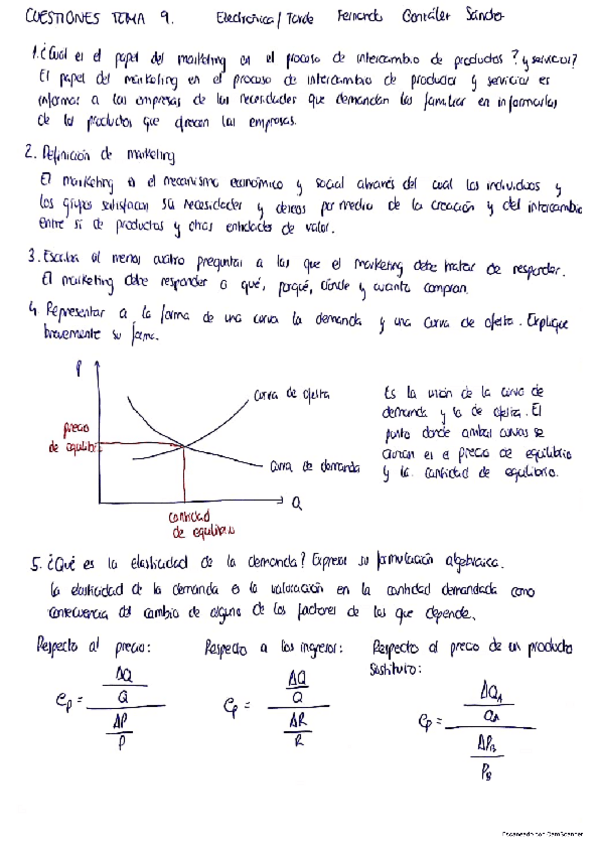 CUESTIONES TEMA 9. Electrónica/Tarde Fernando González Sández
1. ¿Cuál es el papel del marketing en el proceso de intercambio de productos? y servicios?
El papel del marketing en el proceso de intercambio de productos y servicios es
informar a las empresas de las necesidades que demandan las familias en informarlas
de los productos que ofrecen las empresas.
2. Definición de marketing
El marketing es el mecanismo económico y social através del cual los individuos y
los grupos satisfacen su necesidades y deseos por medio de la creación y del intercambio
entre sí de productos y otras entidades de valor.
3. Escriba al menos cuatro preguntas a las que el marketing debe tratar de responder.
El marketing debe responder a qué, porqué, dónde y cuanto compran.
4. Representar a la forma de una curva la demanda y una curva de oferta. Explique
brevemente su forma.
P
curva de oferta
precio
de equilibrio
curva de demanda
Q
cantidad
de equilibrio
Es la unión de la curva de
demanda y la de oferta. El
punto donde ambas curvas se
cruzan es el precio de equilibrio
y la cantidad de equilibrio.
5. ¿Qué es la elasticidad de la demanda? Expresar su formulación algebraica.
La elasticidad de la demanda es la valoración en la cantidad demandada como
consecuencia del cambio de alguno de los factores de los que depende.
Respecto al precio:
ep = (ΔQ/Q) / (ΔP/P)
Respecto a los ingresos:
ep = (ΔQ/Q) / (ΔR/R)
Respecto al precio de un producto
sustituto:
ep = (ΔQA/QA) / (ΔPB/PB)
Escaneado con CamScanner